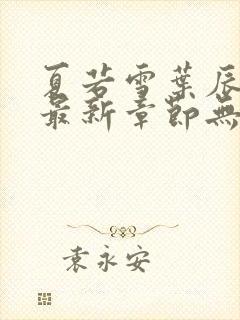 夏若雪葉辰
最新章節無
袁永安